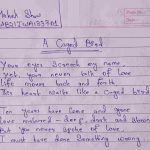 Mahek Shaw
A Caged Bird
Your eyes screech my name
yet, your never talk of love
Life moves back and forth
This heart waits like a Caged bird
Ten years have come and gone
love matured - deep, dark and
But you never spoke of love
I must have done something wrong